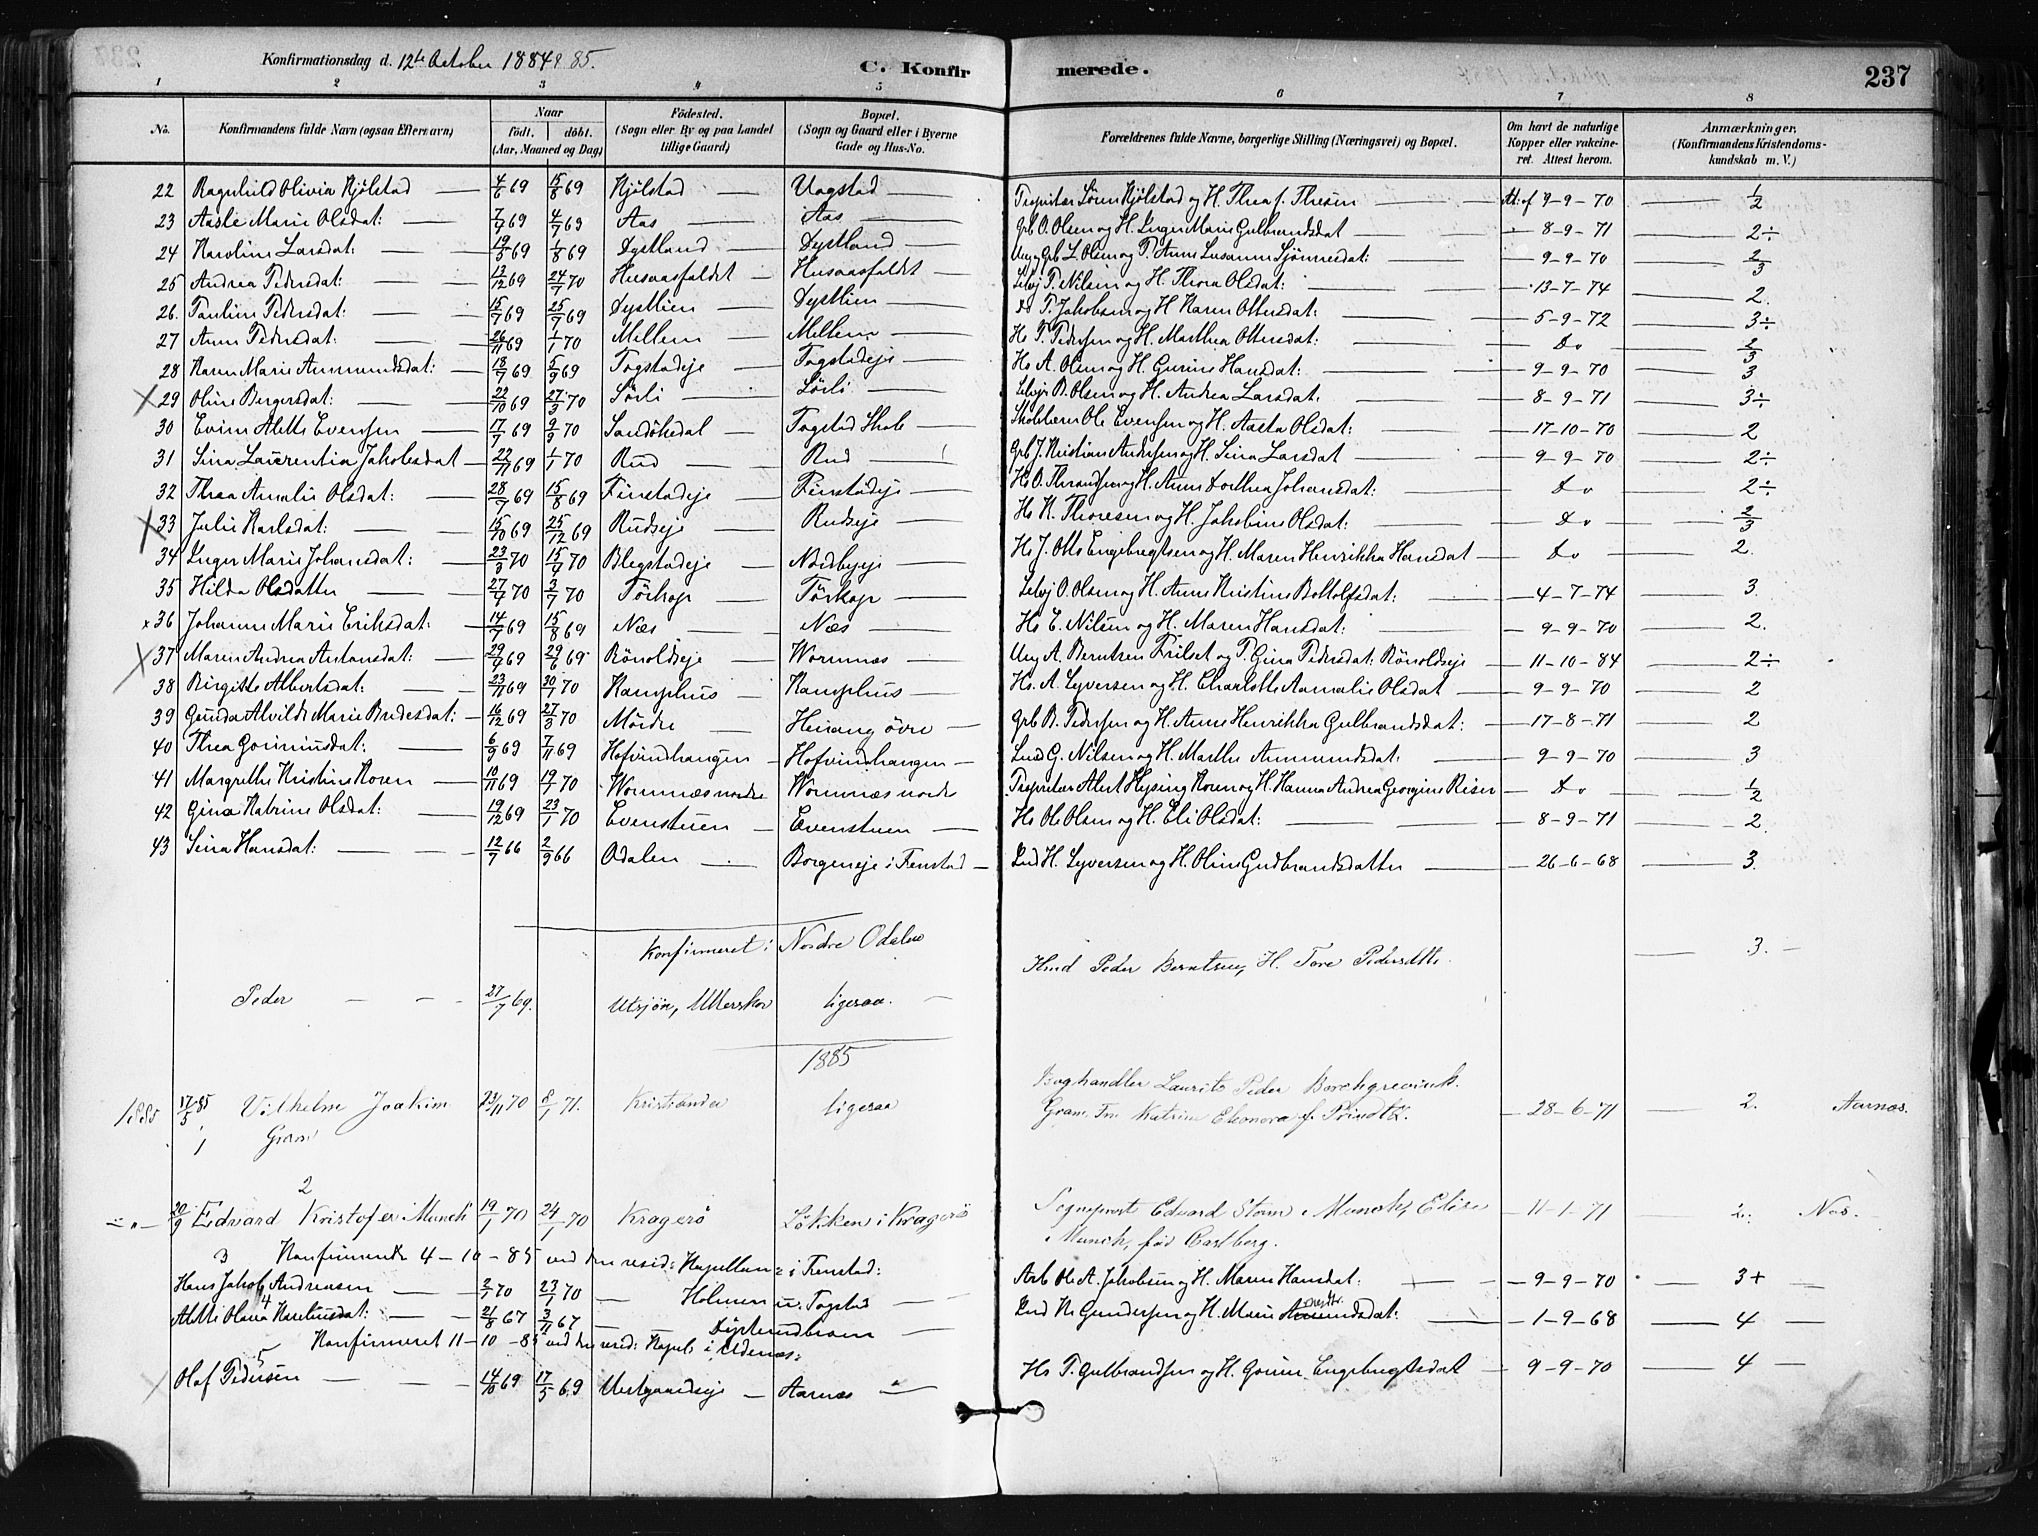 Konfirmationsdag d. 12te October 1884 & 85.
C. Konfirmerede.
237
1 2 3 4 5 6 7 8
No.
Konfirmandens fulde Navn (ogsaa Efternavn)
Naar
født. døbt.
(Aar, Maaned og Dag)
Fødested.
(Sogn eller By og paa Landet
tillige Gaard)
Bopæl.
(Sogn og Gaard eller i Byerne
Gade og Hus-No.
Forældrenes fulde Navne, borgerlige Stilling (Næringsvei) og Bopæl.
Om havt de naturlige
Kopper eller vaccine-
ret. Attest herom.
Anmærkninger.
(Konfirmandens Kristendoms-
kundskab m. V.)
22 Ragnhild Olivia Kjölstad 4/6 69 15/8 69 Kjölstad Uagstad Proprietær Sören Kjölstad og H. Thea f. Thesen At. af 9-9-70 1/2
23 Aasle Marie Olsdat: 7/4 69 4/7 69 Aas Aas Grb O. Olsen og H. Inger Marie Gulbrandsdat 8-9-71 2÷
24 Karoline Larsdat: 19/5 69 1/8 69 Dystland Dystland Ung Grb L. Olsen og P. Anne Susanne Sjönnesdat: 9-9-70 2/3
25 Andrea Pedersdat: 13/12 69 24/7 70 Husaasfaldet Husaasfaldet Selvej P. Nilsen og H. Thora Olsdat: 13-7-74 2.
26. Pauline Pedersdat: 15/7 69 25/7 69 Dystlien Dystlien do P. Jakobsen og H Karen Ottersdat: 5-9-72 3÷
27 Anne Pedersdat: 26/11 69 1/1 70 Mellem Mellem Hs P. Pedersen og H. Marthea Ottersdat: Do 2/3
28 Karen Marie Amundsdat: 18/7 69 5/9 69 Fogstadeje Fogstadeje Hs A. Olsen og H. Gurine Hansdat: 9-9-70 3
29 Oline Bergersdat: 22/10 69 27/3 70 Sörli Sörli Selvejr B. Olsen og H. Andrea Larsdat. 8-9-71 3÷
30 Evine Alette Evensen 17/7 69 9/9 70 Sandökedal Fogstad Skole Skolelærer Ole Evensen og H. Aasta Olsdat: 17-10-70 2
31 Sina Laurentia Jakobsdat 22/11 69 1/1 70 Rud Rud Grb J. Kristian Andersen og H. Sina Larsdat 9-9-70 2÷
32 Thea Amalie Olsdat: 28/7 69 15/8 69 Finstadeje Finstadeje Hs O. Thrandsen og H. Anne Dorthea Johansdat: Do 2÷
33 Julie Karlsdat: 15/10 69 25/12 69 Rudseje Rudseje Hs K. Thoresen og H. Jakobine Olsdat: Do 2/3
34 Inger Marie Johansdat: 23/3 70 15/4 70 Blegstadeje Nordbyeje Hs J. Otto Engebregtsen og H. Maren Henrikka Hansdat Do 2.
35 Hilda Olsdatter 27/4 70 3/7 70 Törkop Törkop Selvej O. Olsen og H. Anne Kristine Bottolfsdat: 4-7-74 3.
36 Johanne Marie Eriksdat: 14/7 69 15/8 69 Næs Næs Hs E. Nilsen og H. Maren Hansdat: 9-9-70 2.
37 Maren Andrea Antonsdat: 29/4 69 29/6 69 Rönoldseje Wormnæs Ung A. Berntsen Frilset og P. Gina Pedersdat: Rönoldseje 11-10-84 2÷
38 Birgitte Albertsdat: 23/11 69 30/1 70 Kamphus Kamphus Hs. A. Syversen og H. Charlotte Aamalie Olsdat 9-9-70 2
39 Gunda Alvilde Marie Bredesdat: 16/12 69 27/3 70 Mördre Henang övre Grb B. Pedersen og H. Anne Henrikka Gulbrandsdat: 17-8-71 2
40 Thea Gorinusdat: 6/9 69 7/11 69 Hofvindhangen Hofvindhangen Ind G. Nilsen og H. Marthe Ammundsdat: 9-9-70 3
41 Margrethe Kristine Koren 10/11 69 19/1 70 Wormnæs nordre Wormnæs nordre Proprietær Alert Hysing Koren og H. Hanna Andrea Georgine Riser Do 1/2
42 Gina Katrine Olsdat: 19/12 69 23/1 70 Evenstuen Evenstuen Hs Ole Olsen og H. Eli Olsdat: 8-9-71 2.
43 Sina Hansdat: 12/7 66 2/9 66 Odalen Borgenseje i Fenstad Ind H. Syversen og H. Oline Gudbrandsdatter 26-6-68 3.
Konfirmeret i Nordre Odalen
Peder 27/7 69. Utsjön, Ullerskov ligesaa. Hmd Peder Berntsen, H. Tore Pedersdtt. 3.
1885
1885 17/5 85 Vilhelm Joakim Gram 23/11 70 8/1 71. Kristiania ligesaa Boghandler Laurits Peder Borchgrevink
1 Gram, Fru Katrine Eleonora f. Prindtz. 28-6-71 2. Aarnæs.
2
20/9 Edvard Kristofer Munch 19/1 70 24/1 70 Kragerö Lökken i Kragerö Sogneprest Edvard Storm Munch, Elise 11-1-71 2. Næs.
Munch, föd Carlberg.
3 Konfirmerede 4-10-85 ved den resid: Kapellan i Fenstad:
Hans Jakob Andreasen 2/1 70 23/1 70 Holmen u. Fogstad Arb Ole A. Jakobsen og H. Maren Hansdat: 9-9-70 3+
4
Alette Olava Kareliusdat: 21/8 67 3/11 67 Dystlandbraaten Ind K. Gundersen og H. Marie Amundsdat: 1-9-68 4
Konfirmeret 11-10-85 ved den resid: Kapel: i Udenæs:
5
Olaf Pedersen 14/10 69 17/5 69 Vestgaardseje Aarnæs Hs P. Gulbrandsen og H. Gorine Engebregtsdat 9-9-70 4